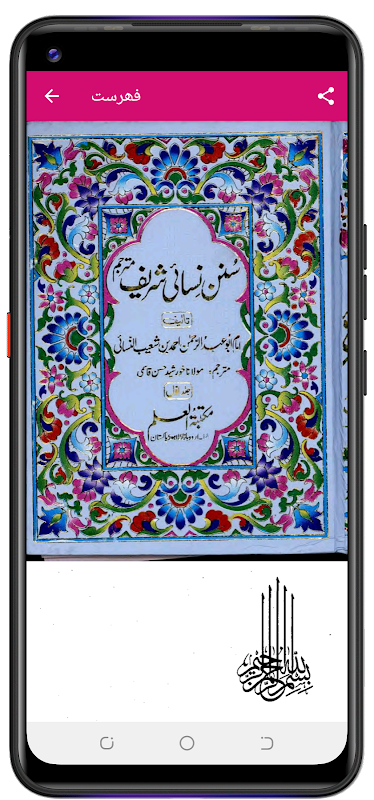 فہرست
سُنن نسائی شریف مترجم
تالیف
امام ابو عبد الرحمٰن احمد بن شعیب النسائی
مترجم: مولانا خورشید حسن قاسمی
جلد اول
مکتبۃ العلم
اردو بازار لاہور پاکستان
بسم الله الرحمن الرحيم